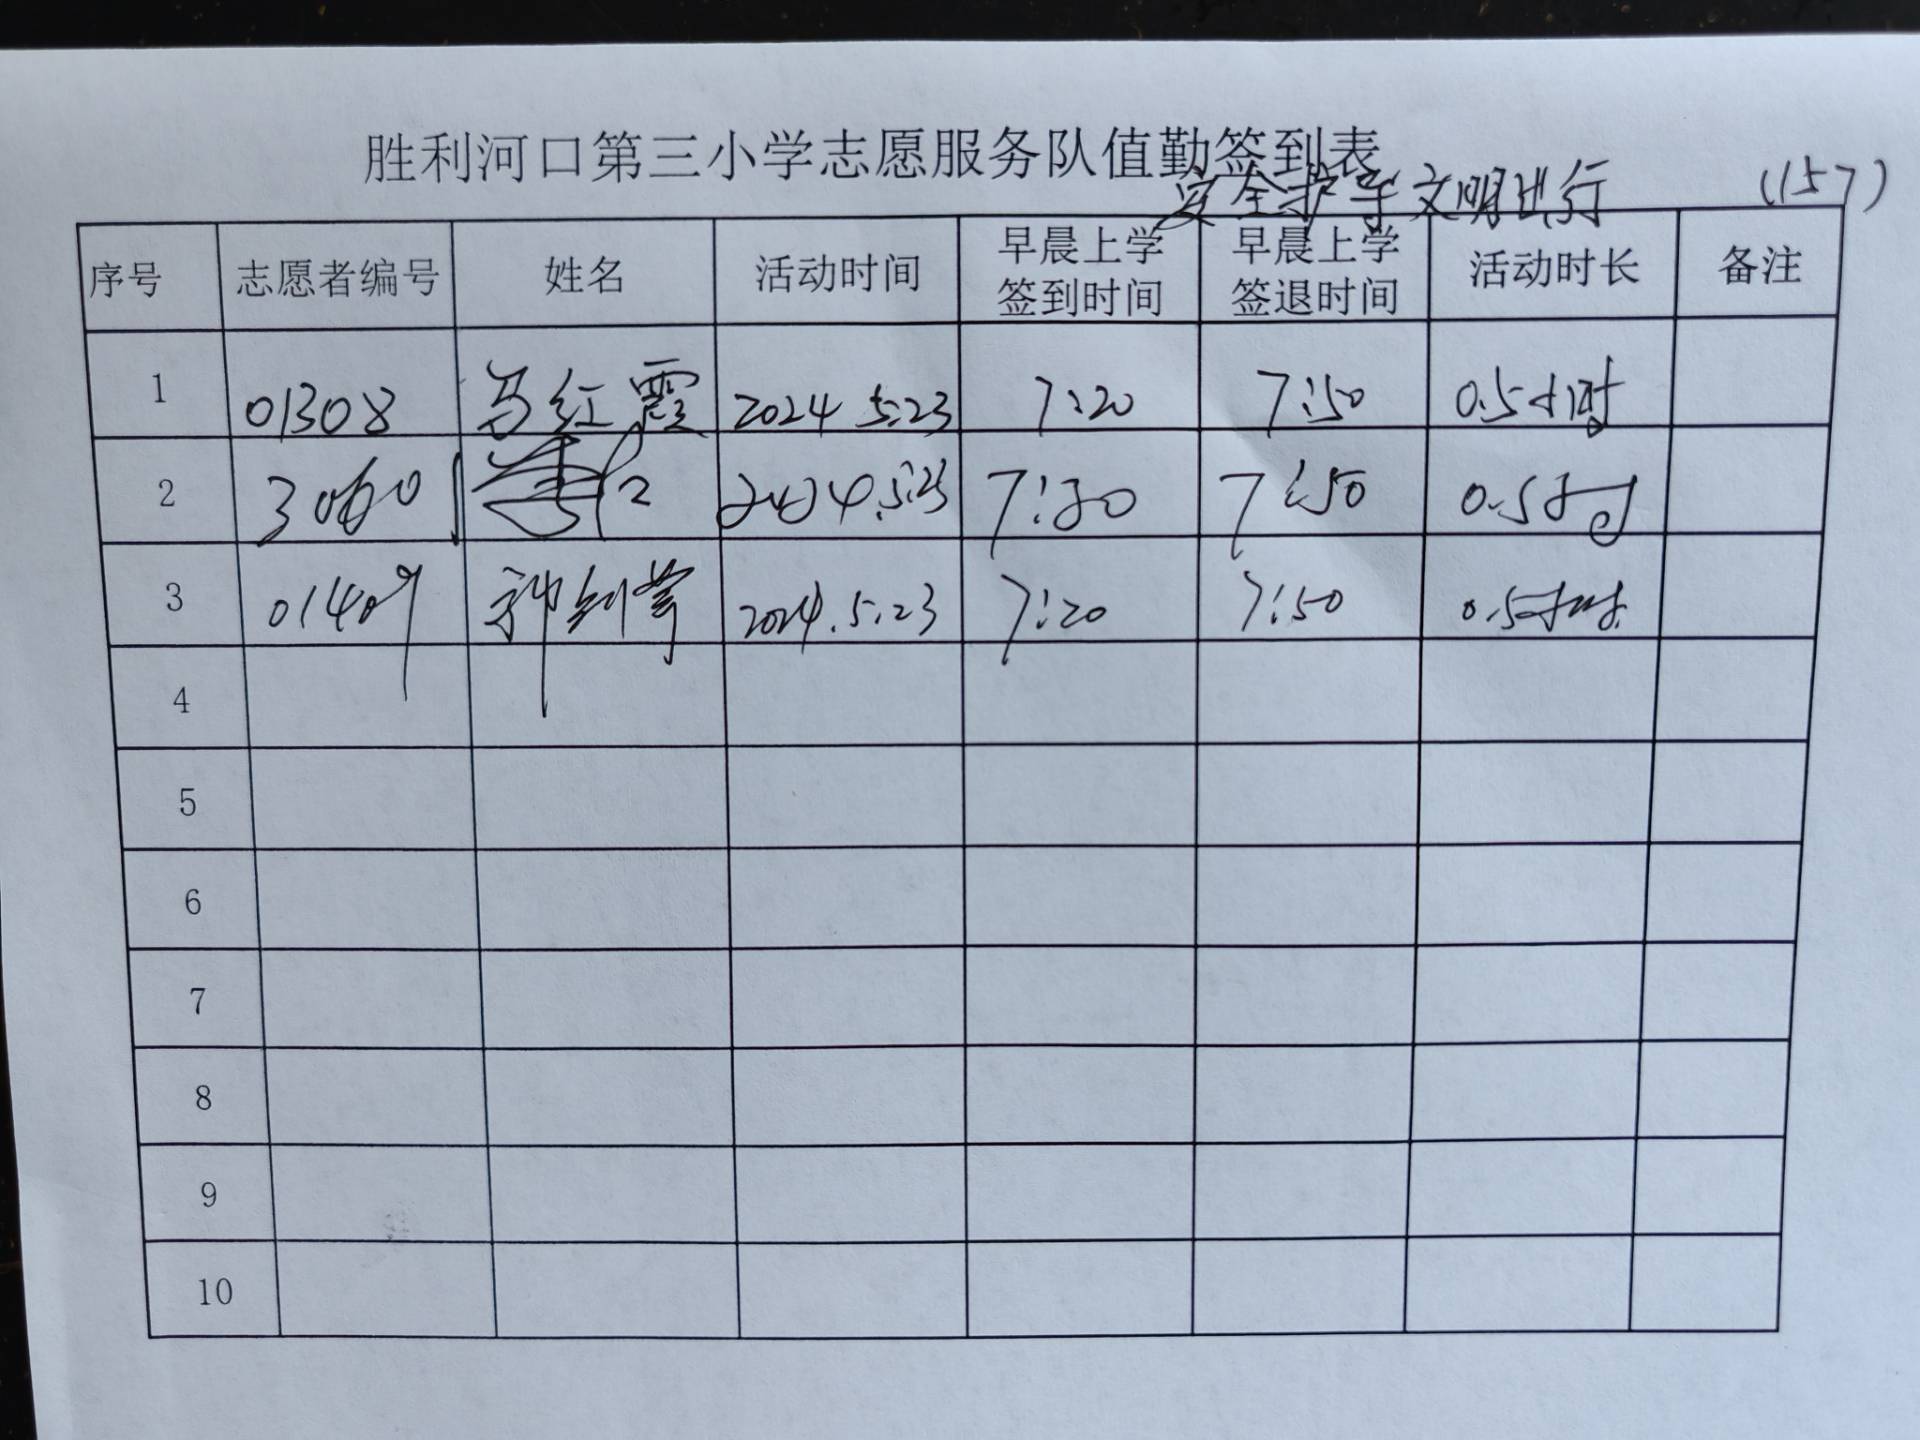 胜利河口第三小学志愿服务队值勤签到表
安全护学 文明出行 (157)
序号 志愿者编号 姓名 活动时间 早晨上学签到时间 早晨上学签退时间 活动时长 备注
1 01308 马红霞 2024 5.23 7:20 7:50 0.5小时
2 2024.5.23 7:50 0.5小时
3 2024.5.23 7:20 7:50 0.5小时
4
5
6
7
8
9
10